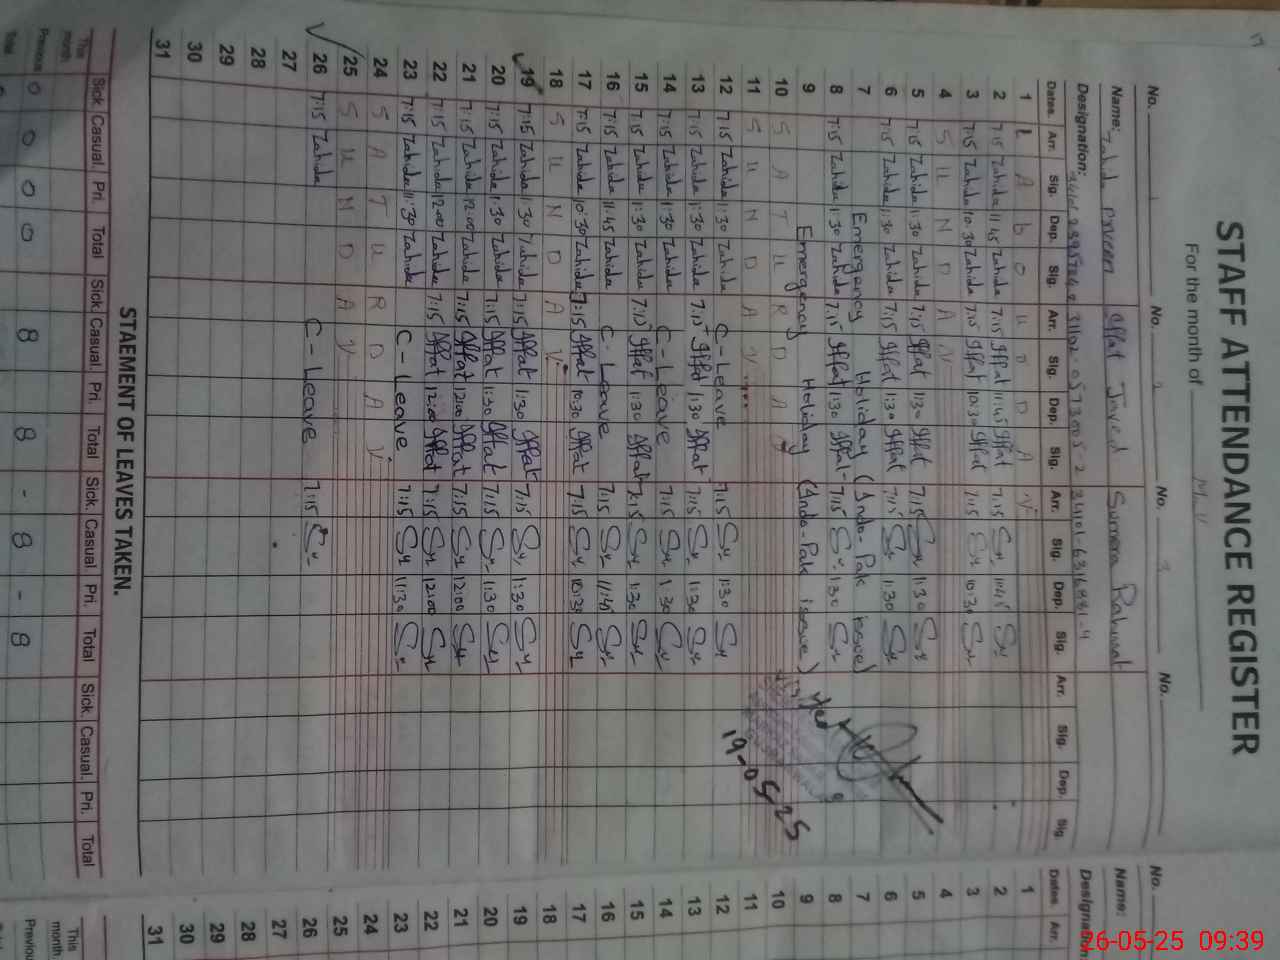 STAFF ATTENDANCE REGISTER
For the month of May
No. 1 No. 2 No. 3 No.
Name: Zahida Parveen Iffat Javed Sumera Rahmat
Designation: 31102-0573005-2
Dates. Arr. Sig. Dep. Sig. Arr. Sig. Dep. Sig. Arr. Sig. Dep. Sig. Arr. Sig. Dep. Sig
1 L A b O U D D A Y
2 7:15 Zahida 11:45 Zahida 7:15 Iffat 11:45 Iffat 7:15 11:45
3 7:15 Zahida 10:30 Zahida 7:15 Iffat 10:30 Iffat 7:15 10:30
4 S U N D A Y
5 7:15 Zahida 1:30 Zahida 7:15 Iffat 1:30 Iffat 7:15 1:30
6 7:15 Zahida 1:30 Zahida 7:15 Iffat 1:30 Iffat 7:15 1:30
7 Emergency Holiday (Indo-Pak issue)
8 7:15 Zahida 1:30 Zahida 7:15 Iffat 1:30 Iffat 7:15 1:30
9 Emergency Holiday (Indo-Pak issue)
10 S A T U R D A Y
11 S U N D A Y
12 7:15 Zahida 1:30 Zahida C-Leave 7:15 1:30
13 7:15 Zahida 1:30 Zahida 7:15 Iffat 1:30 Iffat 7:15 1:30
14 7:15 Zahida 1:30 Zahida C-Leave 7:15 1:30
15 7:15 Zahida 1:30 Zahida 7:15 Iffat 1:30 Iffat 7:15 1:30
16 7:15 Zahida 11:45 Zahida C-Leave 7:15 11:45
17 7:15 Zahida 10:30 Zahida 7:15 Iffat 10:30 Iffat 7:15 10:30
18 S U N D A Y
19 7:15 Zahida 1:30 Zahida 7:15 Iffat 1:30 Iffat 7:15 1:30
20 7:15 Zahida 1:30 Zahida 7:15 Iffat 1:30 Iffat 7:15 1:30
21 7:15 Zahida 12:00 Zahida 7:15 Iffat 12:00 Iffat 7:15 12:00
22 7:15 Zahida 12:00 Zahida 7:15 Iffat 12:00 Iffat 7:15 12:00
23 7:15 Zahida 11:30 Zahida C-Leave 7:15 11:30
24 S A T U R D A Y
25 S U N D A Y
26 7:15 Zahida C-Leave 7:15
27
28
29
30
31
19-05-25
STAEMENT OF LEAVES TAKEN.
Sick Casual. Pri. Total Sick. Casual. Pri. Total Sick. Casual. Pri. Total Sick. Casual. Pri. Total
This month
Previous 0 0 0 0 8 8 - 8 - 8
Total
No.
Name:
Designation
Dates. Arr.
1
2
3
4
5
6
7
8
9
10
11
12
13
14
15
16
17
18
19
20
21
22
23
24
25
26
27
28
29
30
31
This month
Previou
26-05-25 09:39